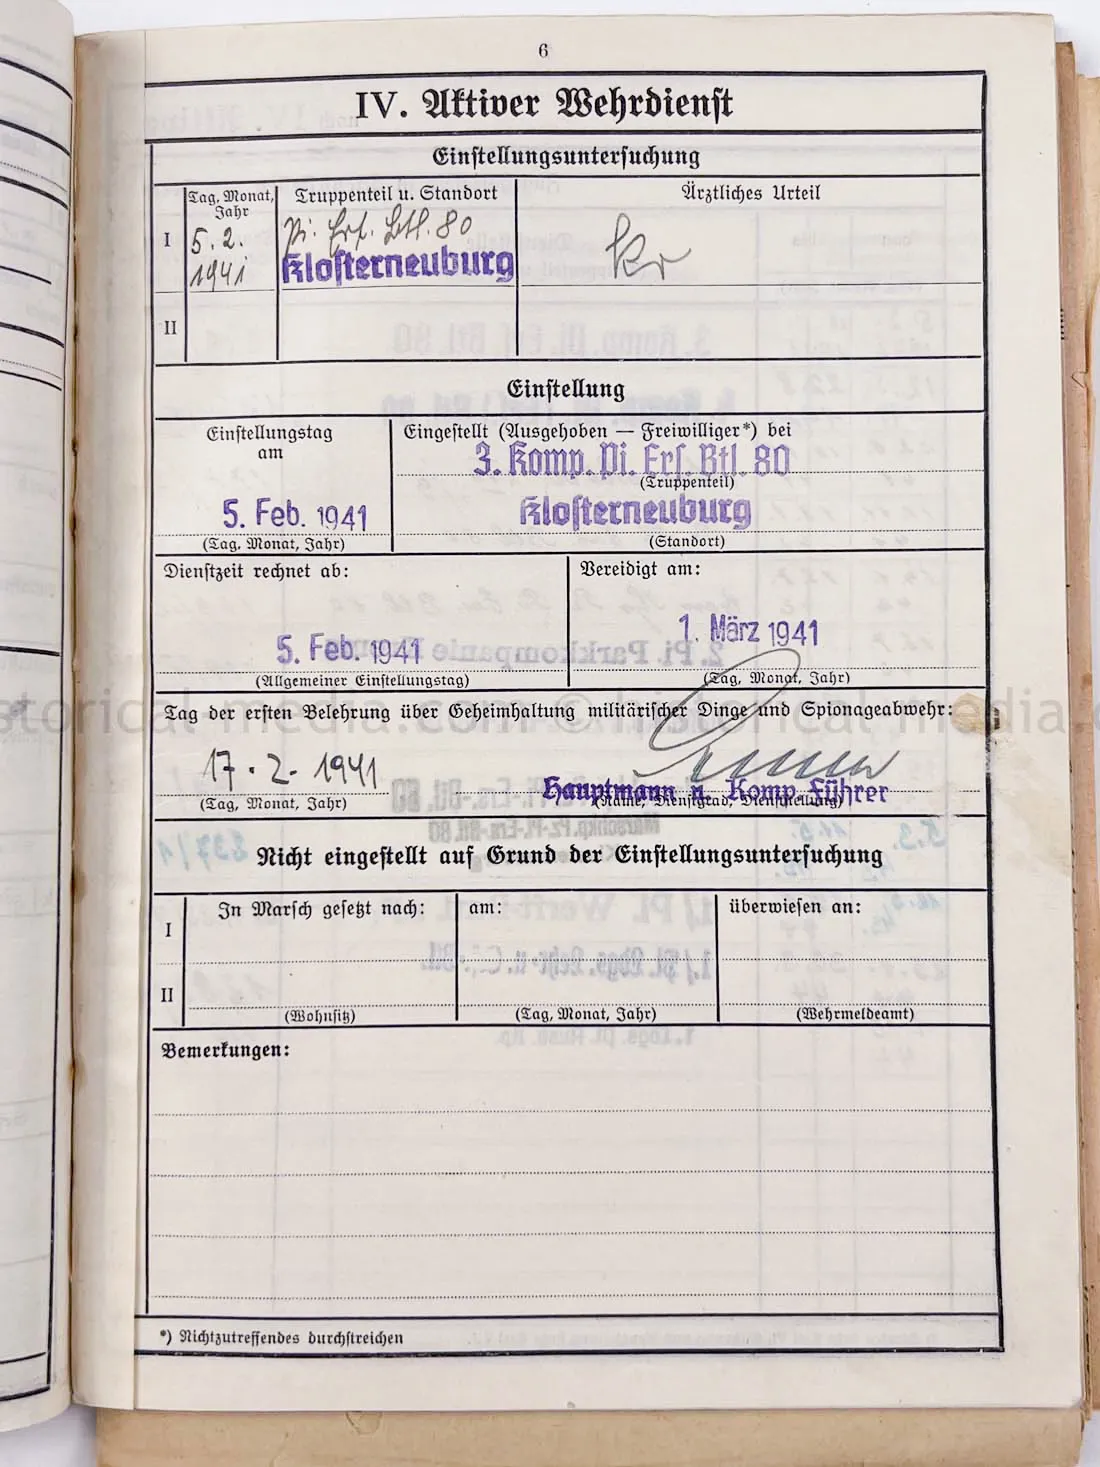 6
IV. Aktiver Wehrdienst
Einstellungsuntersuchung
Tag, Monat, Jahr
Truppenteil u. Standort
Ärztliches Urteil
I
5. 2. 1941
Pi. Ers. Btl. 80
Klosterneuburg
kv
II
Einstellung
Einstellungstag
am
5. Feb. 1941
(Tag, Monat, Jahr)
Eingestellt (Ausgehoben — Freiwilliger*) bei
3. Komp. Pi. Ers. Btl. 80
(Truppenteil)
Klosterneuburg
(Standort)
Dienstzeit rechnet ab:
5. Feb. 1941
(Allgemeiner Einstellungstag)
Vereidigt am:
1. März 1941
(Tag, Monat, Jahr)
historical-media.com © historical-media.co
Tag der ersten Belehrung über Geheimhaltung militärischer Dinge und Spionageabwehr:
17. 2. 1941
(Tag, Monat, Jahr)
Hauptmann u. Komp. Führer
(Name, Dienstgrad, Dienststellung)
Nicht eingestellt auf Grund der Einstellungsuntersuchung
In Marsch gesetzt nach:
am:
überwiesen an:
I
II
(Wohnsitz)
(Tag, Monat, Jahr)
(Wehrmeldeamt)
Bemerkungen:
*) Nichtzutreffendes durchstreichen